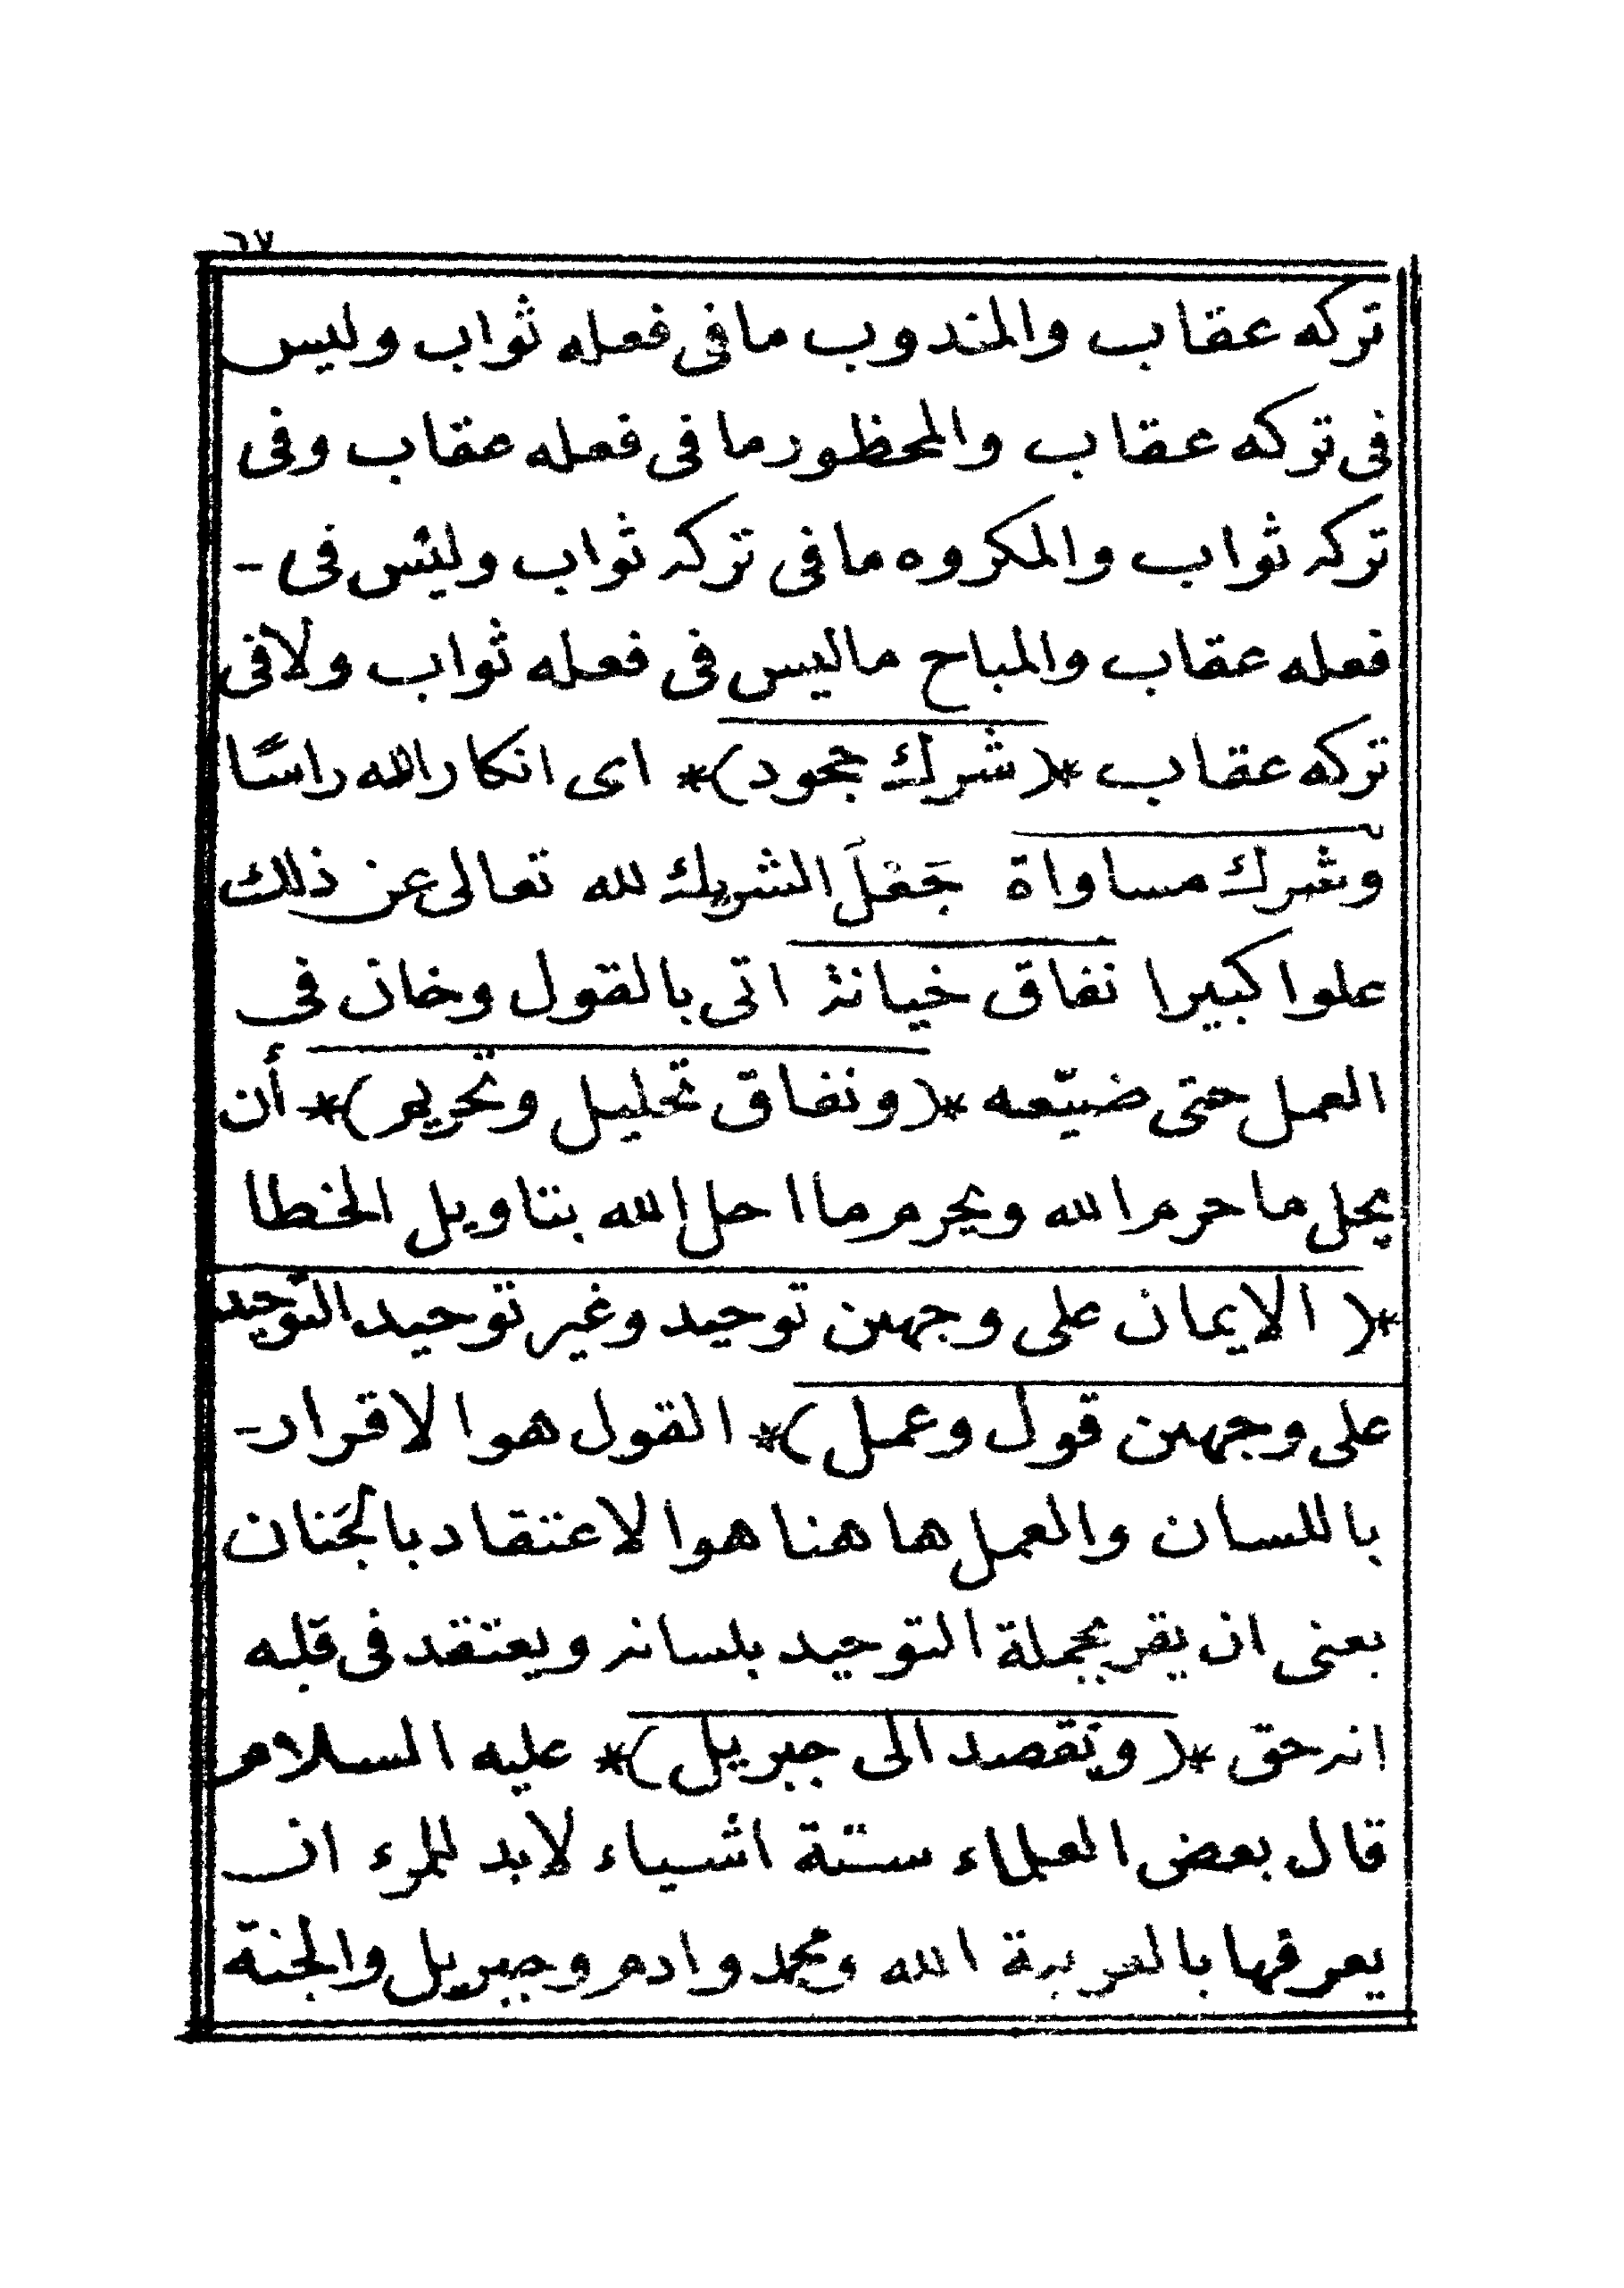 ٦٧
تركه عقاب والمندوب مافى فعله ثواب وليس
فى تركه عقاب والمحظور ما فى فعله عقاب وفى
تركه ثواب والمكروه مافى تركه ثواب وليس فى -
فعله عقاب والمباح ماليس فى فعله ثواب ولافى
تركه عقاب *(شرك جحود)* اى انكار الله راسًا
وشرك مساواة جَعْلَ الشريك لله تعالى عن ذلك
علوا كبيرا نفاق خيانة اتى بالقول وخان فى
العمل حتى ضيّعه *(ونفاق تحليل وتحريم)* أن
يحل ما حرم الله ويحرم ما احل الله بتاويل الخطا
*( الايمان على وجهين توحيد وغير توحيد التوحيد
على وجهين قول وعمل)* القول هوا لاقرار-
باللسان والعمل ها هنا هوا لاعتقاد بالجَنان
بعنى ان يقر بجملة التوحيد بلسانه ويعتقد فى قلبه
انه حق *(ونقصد الى جبريل)* عليه السلام
قال بعض العلماء ستة اشياء لابد للمرء ان
يعرفها بالعربية الله ومحمد وادم وجبريل والجنة